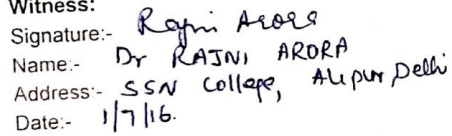 Witness:
Signature:- Rajni Arora
Name:- Dr RAJNI ARORA
Address:- SSN College, Alipur, Delhi
Date:- 1/7/16.